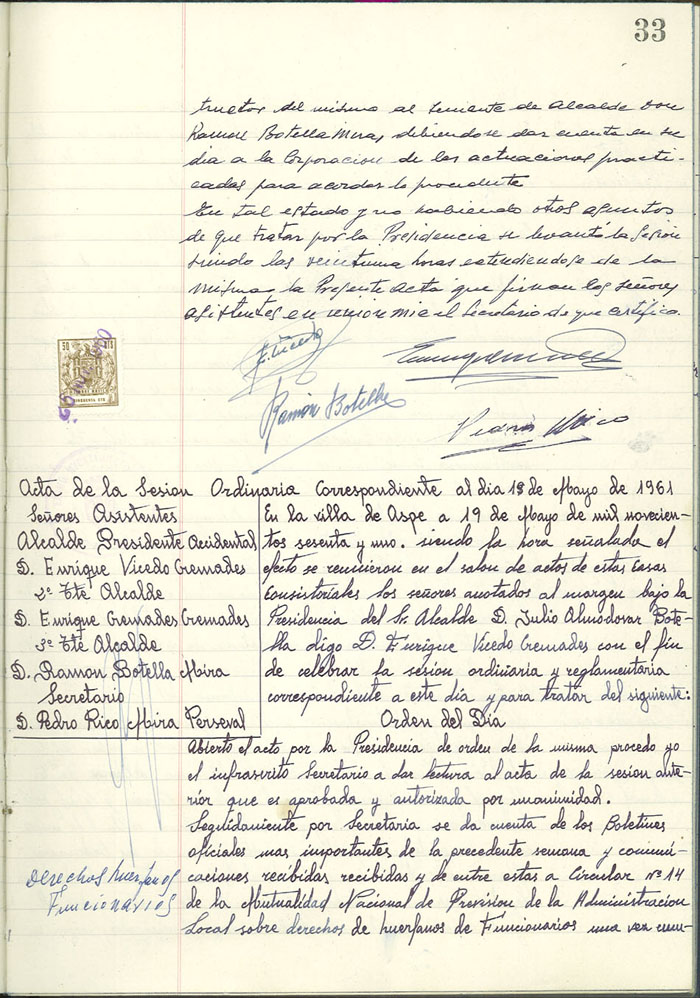 33
tructor del mismo al Teniente de Alcalde Don
Ramon Botella Mira, debiendose dar cuenta en su
dia a la Corporacion de las actuaciones practi-
cadas para acordar lo procedente
En tal estado y no habiendo otros asuntos
de que tratar por la Presidencia se levantó la Sesión
siendo las veintiuna horas extendiendose de la
misma la Presente acta que firman los señores
asistentes en union mia el Secretario de que certifico.
E. Vicedo
Ramón Botella
50 CTS
Acta de la Sesion Ordinaria Correspondiente al dia 19 de Mayo de 1961
Señores Asistentes
Alcalde Presidente Accidental
D. Enrique Vicedo Cremades
2º Tte Alcalde
D. Enrique Cremades Cremades
3º Tte Alcalde
D. Ramon Botella Mira
Secretario
D. Pedro Rico Mira Perseval
En la villa de Aspe a 19 de Mayo de mil novecien-
tos sesenta y uno. siendo la hora señalada el
efecto se reunieron en el salon de actos de estas Casas
Consistoriales los señores anotados al margen bajo la
Presidencia del Sr. Alcalde D. Julio Almodovar Bote-
lla digo D. Enrique Vicedo Cremades con el fin
de celebrar la sesion ordinaria y reglamentaria
correspondiente a este dia y para tratar del siguiente:
Orden del Dia
Abierto el acto por la Presidencia de orden de la misma procedo yo
el infrascrito Secretario a dar lectura al acta de la sesion ante-
rior que es aprobada y autorizada por unanimidad.
Seguidamiente por Secretaria se da cuenta de los Boletines
oficiales mas importantes de la precedente semana y comuni-
caciones recibidas recibidas y de entre estas a Circular nº 14
Derechos huerfanos
Funcionarios
de la Mutualidad Nacional de Prevision de la Administracion
Local sobre derechos de huerfanos de Funcionarios una vez cum-